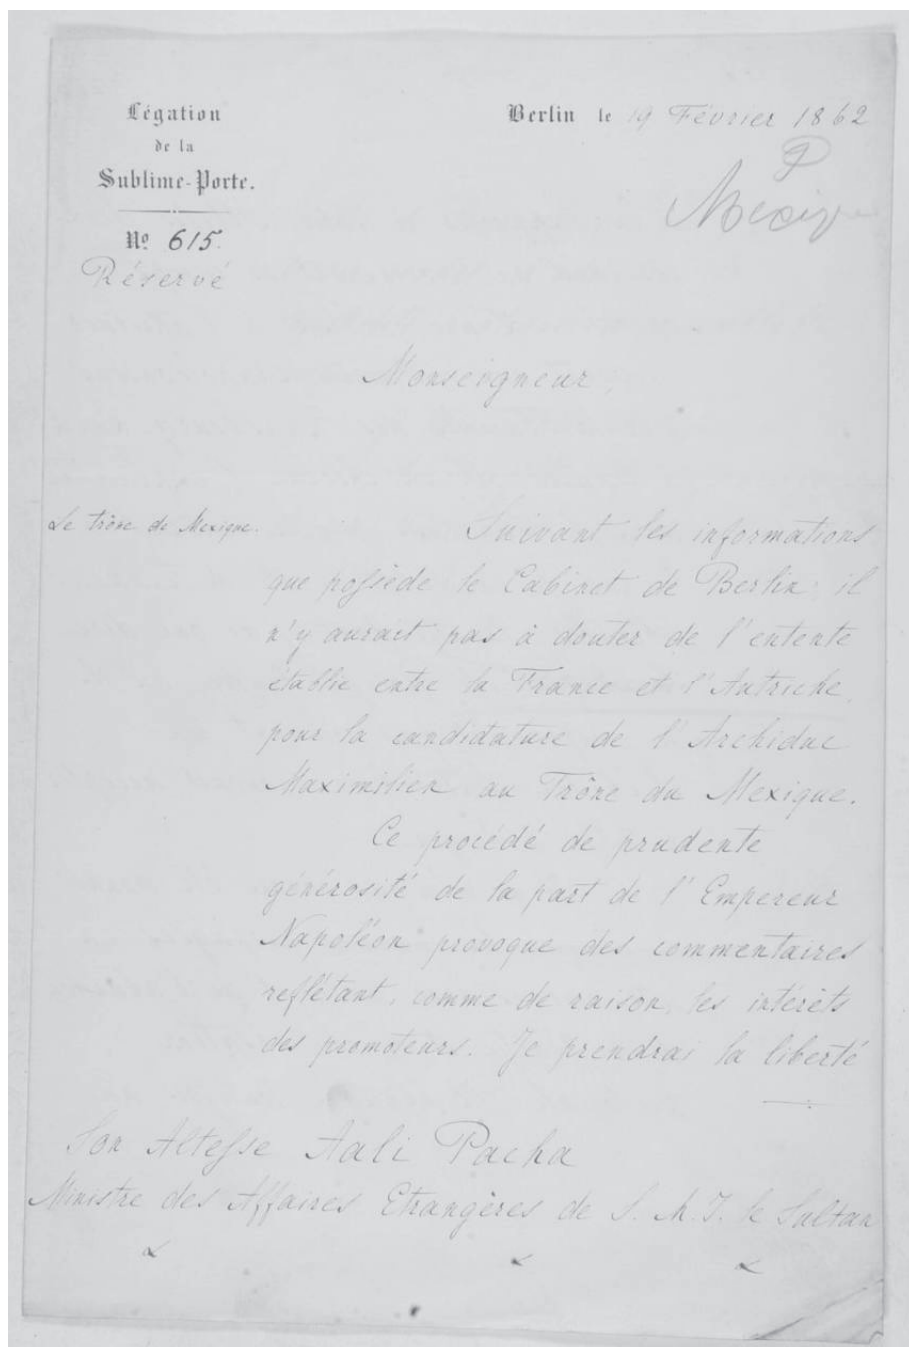 Légation
de la
Sublime-Porte.
Nº 615.
Réservé
Berlin le 19 Février 1862
Mexique
Monseigneur,
Le trône de Mexique.
Suivant les informations
que possède le Cabinet de Berlin, il
n'y aurait pas à douter de l'entente
établie entre la France et l'Autriche,
pour la candidature de l'Archiduc
Maximilien au Trône du Mexique.
Ce procédé de prudente
générosité de la part de l'Empereur
Napoléon provoque des commentaires
reflétant, comme de raison, les intérêts
des promoteurs. Je prendrai la liberté
Son Altesse Aali Pacha
Ministre des Affaires Etrangères de S. M. I. le Sultan